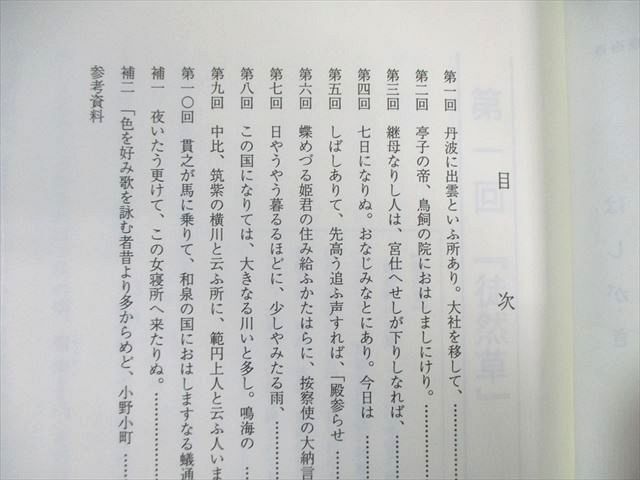 目次
第一回 丹波に出雲といふ所あり。大社を移して、…………
第二回 亭子の帝、鳥飼の院におはしましにけり。…………
第三回 継母なりし人は、宮仕へせしが下りしなれば、…………
第四回 七日になりぬ。おなじみなとにあり。今日は…………
第五回 しばしありて、先高う追ふ声すれば、「殿参らせ…………
第六回 蝶めづる姫君の住み給ふかたはらに、按察使の大納言
第七回 日やうやう暮るるほどに、少しやみたる雨、…………
第八回 この国になりては、大きなる川いと多し。鳴海の
第九回 中比、筑紫の横川と云ふ所に、範円上人と云ふ人いま
第一〇回 貫之が馬に乗りて、和泉の国におはしますなる蟻通
補一 夜いたう更けて、この女寝所へ来たりぬ。…………
補二 「色を好み歌を詠む者昔より多からめど、小野小町……
参考資料
第一回 「徒然草」
はしがき